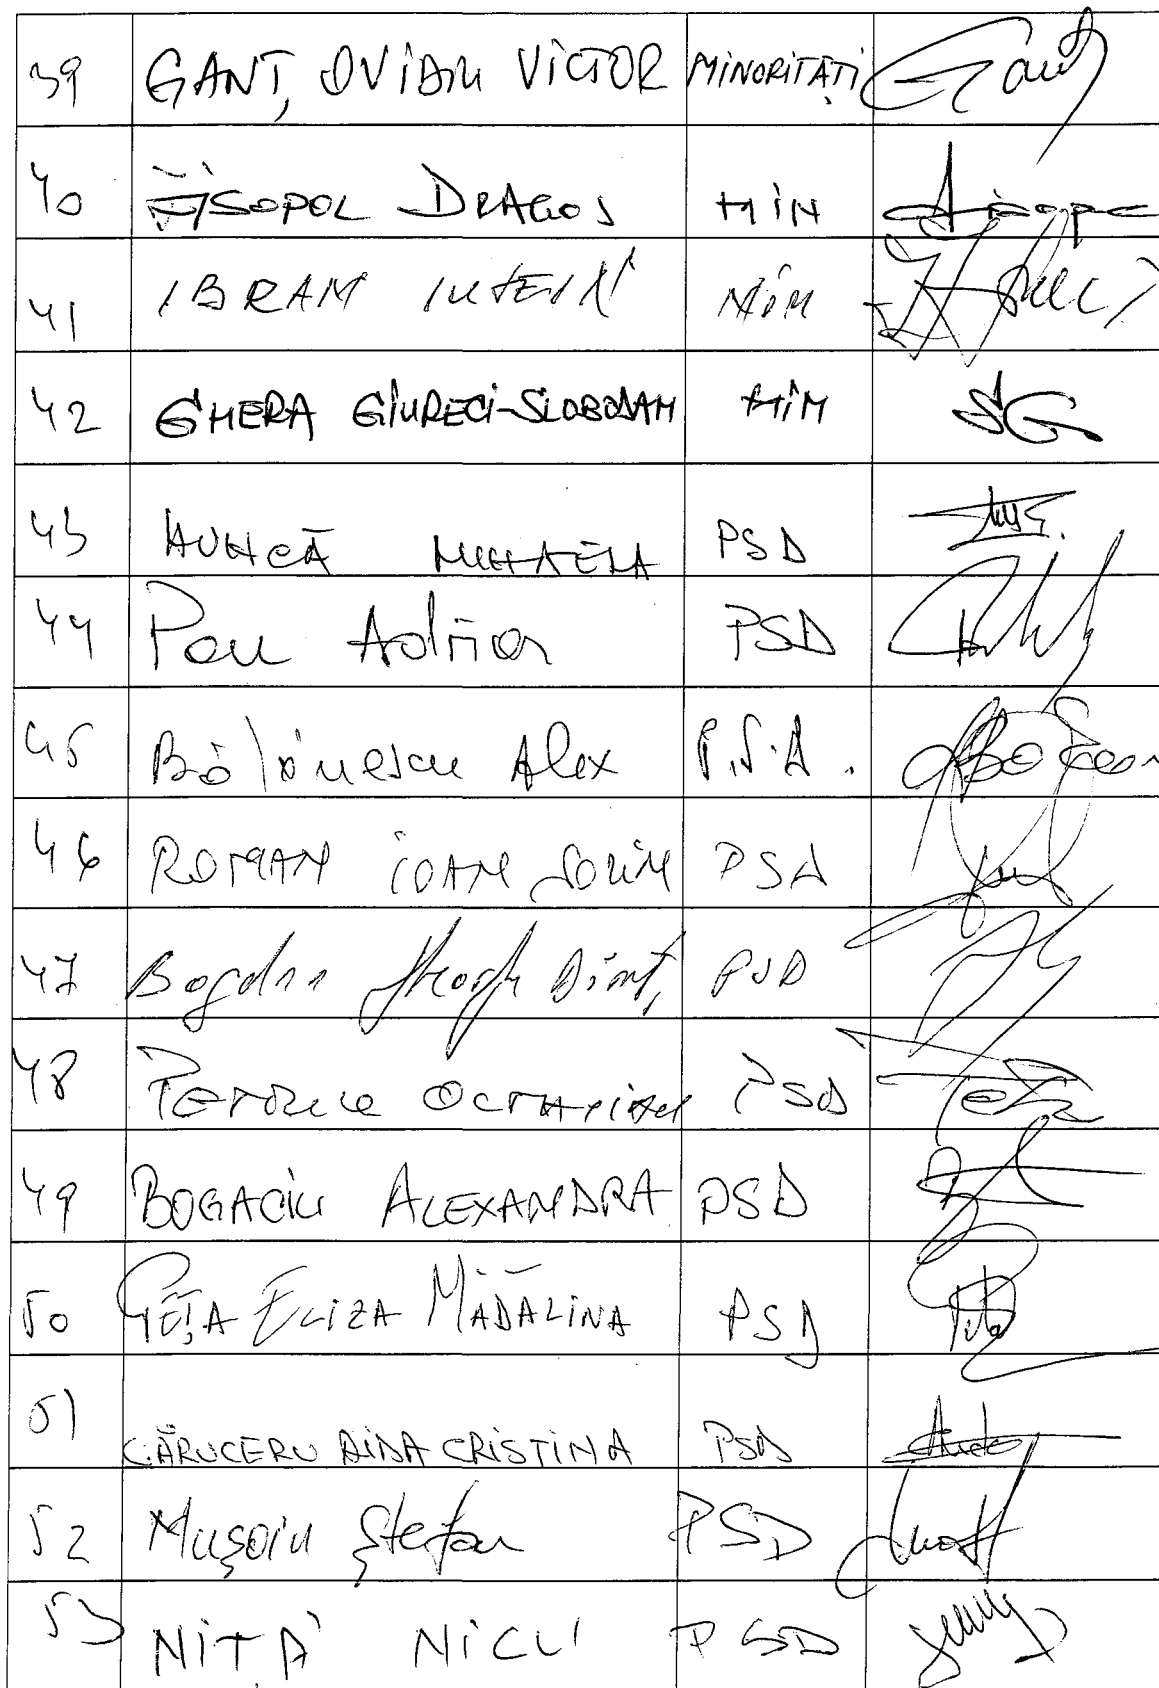 39 GANȚ, OVIDIU VICTOR MINORITĂȚI
40 ZISOPOL DRAGOS MIN
41 IBRAM IUSEIN MIN
42 GHERA GIURECI-SLOBODAN MIN
43 HUNCĂ MIHAELA PSD
44 Pau Adrian PSD
45 Bălănescu Alex P.S.D.
46 ROMAN IOAN SORIN PSD
47 Bogdan Gheorghe PSD
48 PETREA PSD
49 BOGACIU ALEXANDRA PSD
50 PEȚA ELIZA MĂDĂLINA PSD
51 CĂRUCERU AIDA CRISTINA PSD
52 Mușoiu Ștefan PSD
53 NIȚĂ NICU PSD